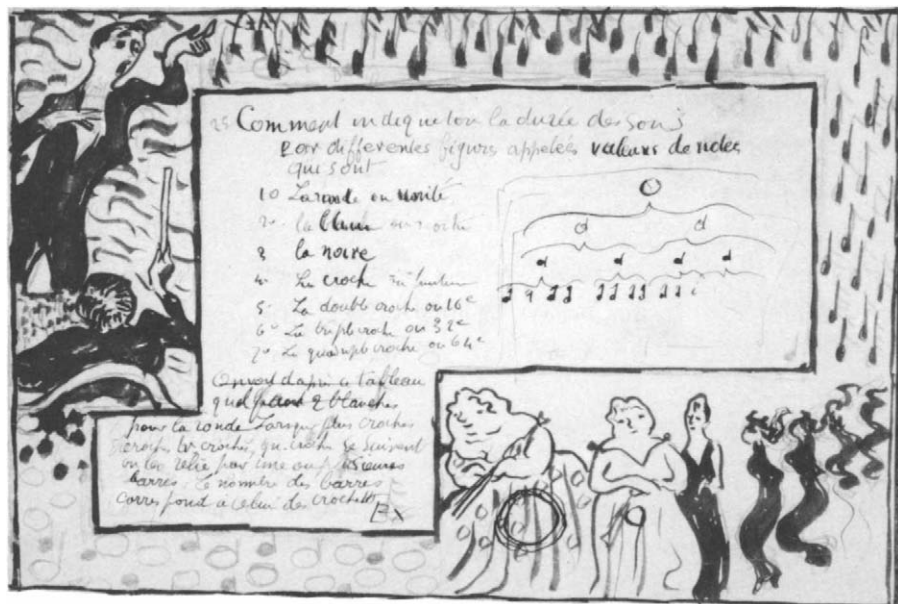 25 Comment indique ton la durée des sons
Par differentes figurs appelées valeurs de notes
qui sont
10 La ronde ou unité
2° la
3 la noire
4° La croche ou huitieme
5° La double croche ou 16e
6° La tripl croche ou 32e
7° La quadrupl croche ou 64e
On voit d'apres ce tableau
quil faut 2 blanches
pour la ronde Lorsque plus croches
croches se suivent
on les relie par une ou plusieures
barres. Le nombre des barres
correspond a celui des crochets
Ex